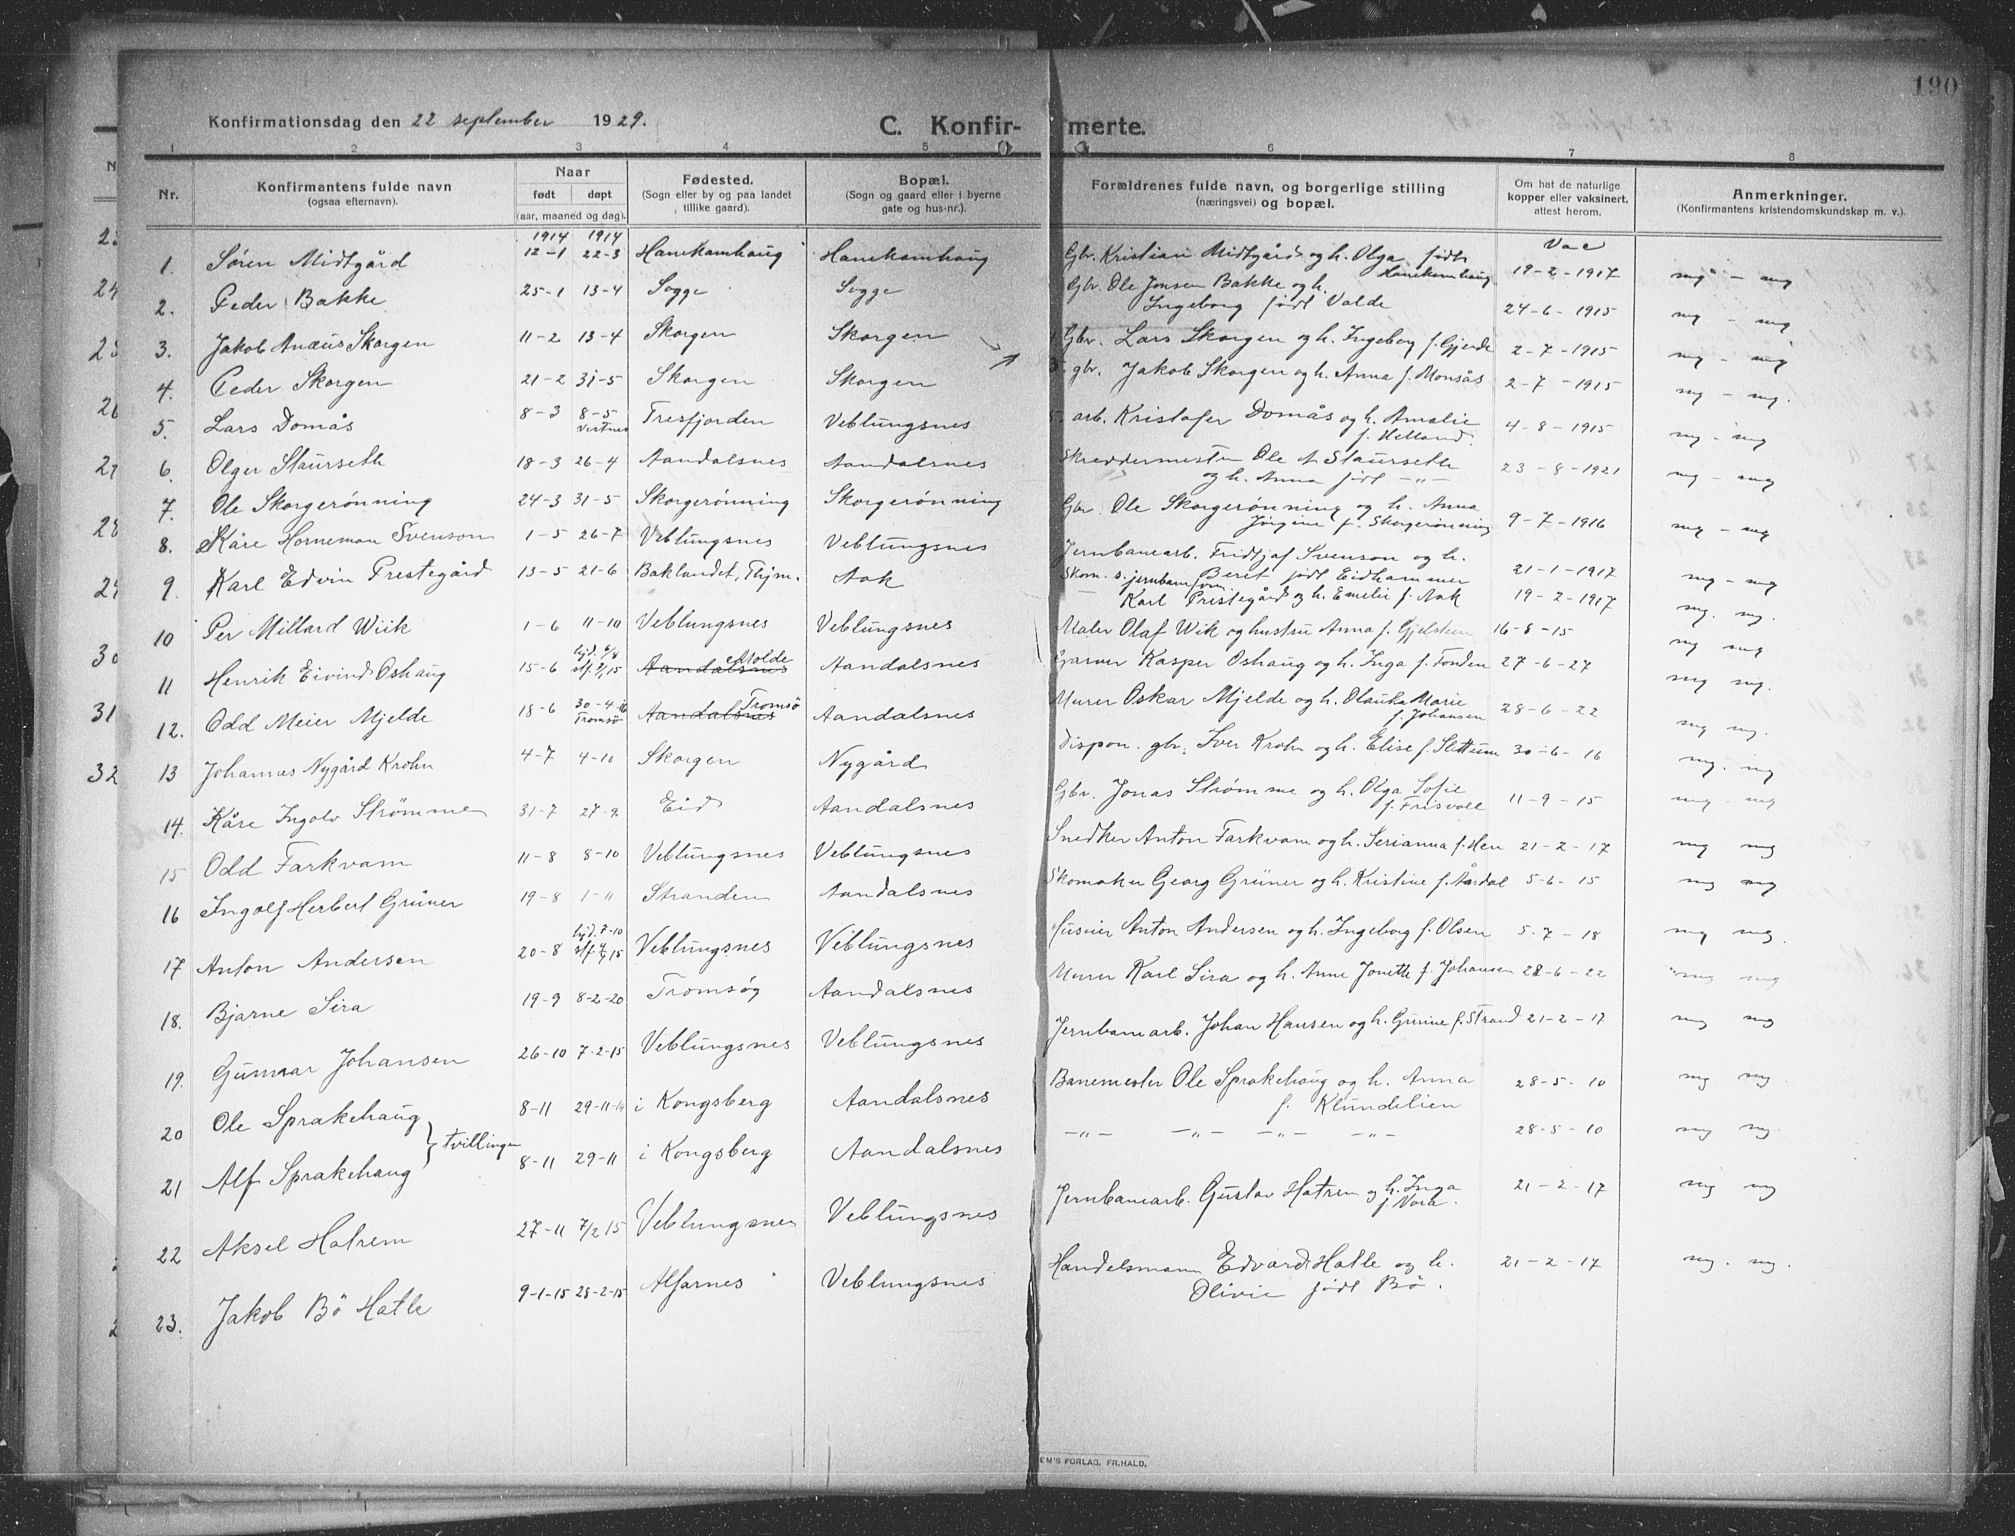 190
Konfirmationsdag den 22 september 1929.
C. Konfir- merte.
1 2 3 4 5 6 7 8
Nr.
Konfirmantens fulde navn
(ogsaa efternavn).
Naar
født døpt
(aar, maaned og dag).
Fødested.
(Sogn eller by og paa landet
tillike gaard).
Bopæl.
(Sogn og gaard eller i byerne
gate og hus-nr.).
Forældrenes fulde navn, og borgerlige stilling
(næringsvei) og bopæl.
Om hat de naturlige
kopper eller vaksinert,
attest herom.
Anmerkninger.
(Konfirmantens kristendomskundskap m. v.).
1914 1914 Vac
1. Søren Midtgård 12-1 22-3 Hanekamhaug Hanekamhaug Gbr. Kristian Midtgård og h. Olga født Hanekamhaug 19-2-1917 mg - mg
2. Peder Bakke 25-1 13-4 Sogge Sogge Gbr. Ole Jonsen Bakke og h.
Ingeborg født Valde 24-6-1915 mg - mg
3. Jakob Anæus Skorgen 11-2 13-4 Skorgen Skorgen Gbr. Lars Skorgen og h. Ingeborg f. Gjerde 2-7-1915 mg - mg
4. Peder Skorgen 21-2 31-5 Skorgen Skorgen gbr. Jakob Skorgen og h. Anna f. Monsås 2-7-1915 mg - mg.
5. Lars Domås 8-3 8-5 Vestnes Tresfjorden Veblungsnes arb. Kristofer Domås og h. Amalie
f. Helland. 4-8-1915 mg - mg
6. Olger Staurseth 18-3 26-4 Aandalsnes Aandalsnes Skreddermester Ole A Staurseth
og h. Anna født -"- 23-8-1921 mg - mg
7. Ole Skorgerønning 24-3 31-5 Skorgerønning Skorgerønning Gbr. Ole Skorgerønning og h. Anna
Jørgine f. Skorgerønning 9-7-1916 mg - mg
8. Kåre Horneman Svenson 1-5 26-7 Veblungsnes Veblungsnes Jernbanearb. Fridtjof Svenson og h.
Beret født Eidhammer 21-1-1917 mg - mg
9. Karl Edvin Prestegård 13-5 21-6 Baklandet, Thjm. Aak Skom. s. jernbanefor
Karl Prestegård og h. Emelie f. Aak 19-2-1917 mg. mg.
10 Per Millard Wiik 1-6 11-10 Veblungsnes Veblungsnes Maler Olaf Wik og hustru Anna f. Gjelstein 16-8-15 mg mg
11 Henrik Eivind Oshaug 15-6 hjd. 6/8 stf. 2/1 15 Aandalsnes Molde Aandalsnes Garver Kasper Oshaug og h. Inga f. Tonden 27-6-27 mg mg.
12. Odd Meier Mjelde 18-6 30-4-16 Tromsø Aandalsnes Tromsø Aandalsnes Murer Oskar Mjelde og h. Olauka Marie
f. Johansen 28-6-22 mg mg.
13 Johannes Nygård Krohn 4-7 4-10 Skorgen Nygård Dispon. gbr. Iver Krohn og h. Elise f. Slettum 30-6-16 mg. mg
14. Kåre Ingolv Strømme 31-7 27-9 Eid Aandalsnes Gbr. Jonas Strømme og h. Olga Sofie
f. Frisvoll 11-9-15 mg. mg
15 Odd Farkvam 11-8 8-10 Veblungsnes Veblungsnes Snedker Anton Farkvam og h. Serianna f. Hen 21-2-17 mg mg
16 Ingolf Herbert Grüner 19-8 1-11 Stranden Aandalsnes Skomaker Georg Grüner og h. Kristine f. Årdal 5-6-15 mg mg
17 Anton Andersen 20-8 hjd. 7-10 Veblungsnes Veblungsnes Huseier Anton Andersen og h. Ingeborg f. Olsen 5-7-18 mg mg.
18. Bjarne Sira 19-9 8-2-20 Tromsø Aandalsnes Murer Karl Sira og h. Anne Jonette f. Johansen 28-6-22 mg mg
19. Gunnar Johansen 26-10 7-2-15 Veblungsnes Veblungsnes Jernbanearb. Johan Hansen og h. Gurine f. Strand 21-2-17 mg mg
20 Ole Sprakehaug 8-11 29-11-14 i Kongsberg Aandalsnes Banemester Ole Sprakehaug og h. Anna
f. Klundelien 28-5-10 mg mg.
} tvillinger
21 Alf Sprakehaug 8-11 29-11 i Kongsberg Aandalsnes -"- -"- -"- -"- 28-5-10 mg mg.
22 Aksel Hatrem 27-11 7/2 15 Veblungsnes Veblungsnes Jernbanearb. Gustav Hatrem og h. Inga
f. Vora. 21-2-17 mg mg
23. Jakob Bö Hatle 9-1-15 28-2-15 Alfarnes Veblungsnes Handelsmann Edvard Hatle og h.
Olivie født Bö. 21-2-17 mg. mg.
EM'S FORLAG, FR.HALD.